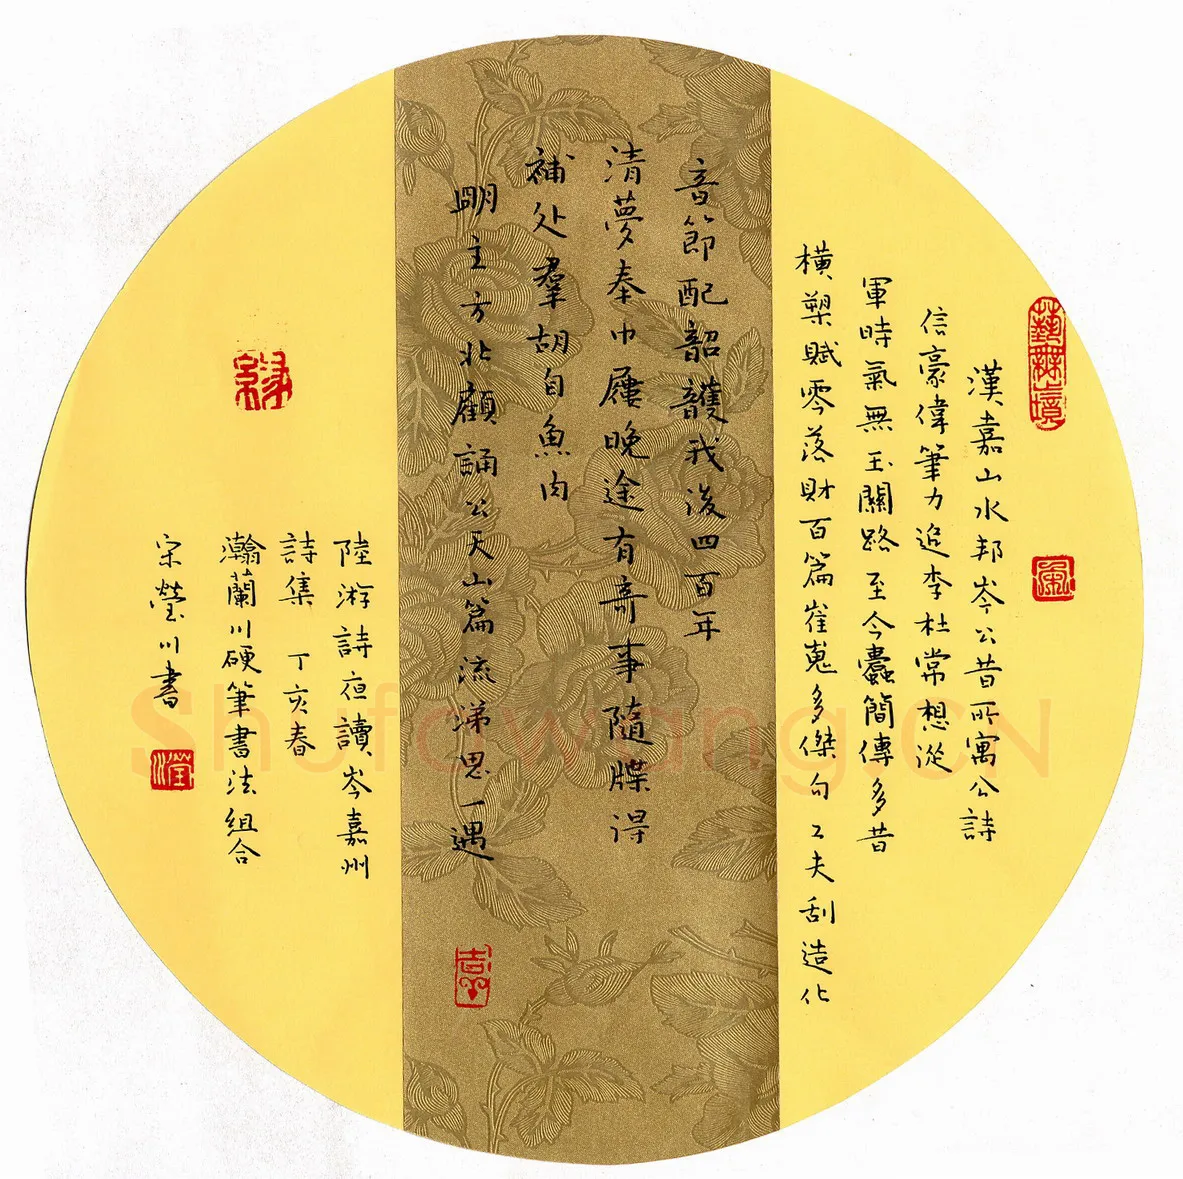 漢嘉山水邦岑公昔所寓公詩
信豪偉筆力追李杜常想從
軍時氣無玉關路至今蠹簡傳多昔
橫槊賦零落財百篇崔嵬多傑句工夫刮造化
音節配韶頀我後四百年
清夢奉巾屨晚途有奇事隨牒得
補处羣胡自魚肉
明主方北顧誦公天山篇流涕思一遇
陸游詩夜讀岑嘉州
詩集 丁亥春
瀚蘭川硬筆書法組合
宋瑩川書
Shufawang.CN